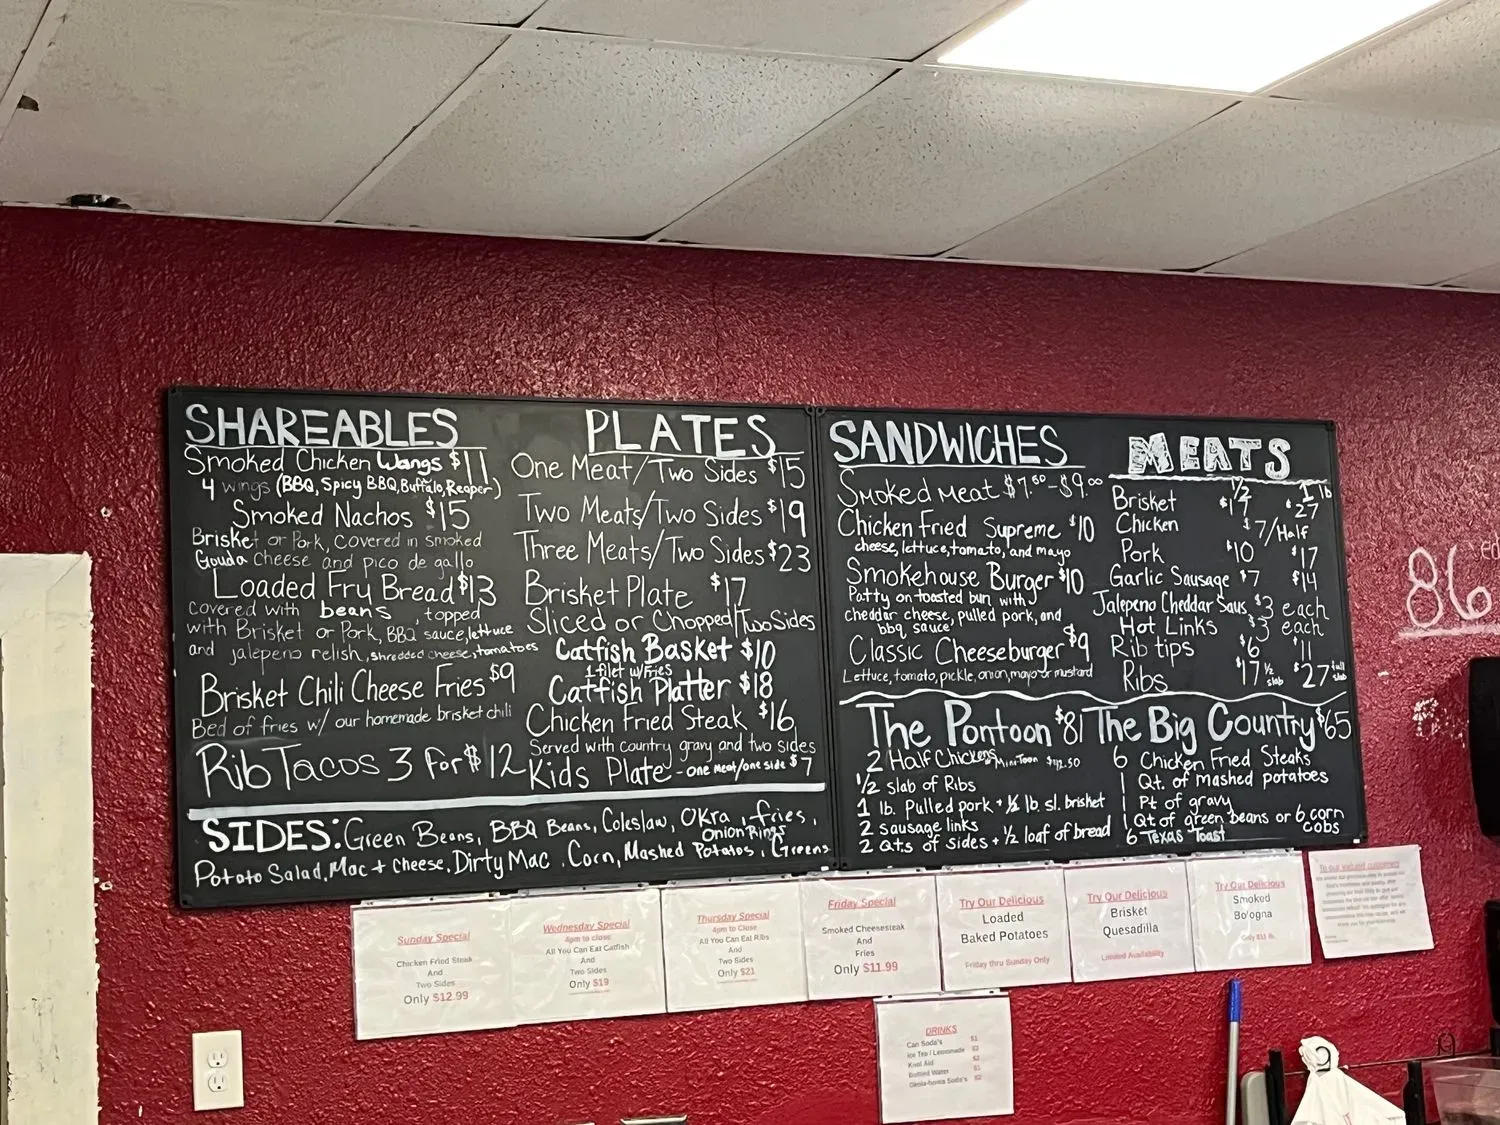 SHAREABLES
Smoked Chicken Wangs $11
4 wings (BBQ, Spicy BBQ, Buffalo, Reaper)
Smoked Nachos $15
Brisket or Pork, covered in smoked
Gouda cheese and pico de gallo
Loaded Fry Bread $13
covered with beans, topped
with Brisket or Pork, BBQ sauce, lettuce
and jalepeno relish, shredded cheese, tomatoes
Brisket Chili Cheese Fries $9
Bed of fries w/ our homemade brisket chili
Rib Tacos 3 for $12
PLATES
One Meat/Two Sides $15
Two Meats/Two Sides $19
Three Meats/Two Sides $23
Brisket Plate $17
Sliced or Chopped/Two Sides
Catfish Basket $10
1 filet w/Fries
Catfish Platter $18
Chicken Fried Steak $16
Served with country gravy and two sides
Kids Plate - one meat/one side $7
SIDES: Green Beans, BBQ Beans, Coleslaw, OKra, fries,
Onion Rings
Potato Salad, Mac + Cheese, Dirty Mac, Corn, Mashed Potatos, Greens
SANDWICHES
Smoked Meat $7.50-$9.00
Chicken Fried Supreme $10
cheese, lettuce, tomato, and mayo
Smokehouse Burger $10
Patty on toasted bun with
cheddar cheese, pulled pork, and
bbq sauce
Classic Cheeseburger $9
Lettuce, tomato, pickle, onion, mayo or mustard
MEATS
1/2 1 lb
Brisket $17 $27
Chicken $7/Half
Pork $10 $17
Garlic Sausage $7 $14
Jalepeno Cheddar Saus. $3 each
Hot Links $3 each
Rib tips $6 $11
Ribs $17 1/2 slab $27 full slab
The Pontoon $81
2 Half Chickens Mini Toon $42.50
1/2 slab of Ribs
1 lb. Pulled pork + 1/2 lb. sl. brisket
2 sausage links
2 Qts of sides + 1/2 loaf of bread
The Big Country $65
6 Chicken Fried Steaks
1 Qt. of mashed potatoes
1 Pt of gravy
1 Qt of green beans or 6 corn cobs
6 Texas Toast
86
Sunday Special
Chicken Fried Steak
And
Two Sides
Only $12.99
Wednesday Special
4pm to close
All You Can Eat Catfish
And
Two Sides
Only $19
Thursday Special
4pm to Close
All You Can Eat Ribs
And
Two Sides
Only $21
Friday Special
Smoked Cheesesteak
And
Fries
Only $11.99
Try Our Delicious
Loaded
Baked Potatoes
Friday thru Sunday Only
Try Our Delicious
Brisket
Quesadilla
Limited Availability
Try Our Delicious
Smoked
Bologna
Only $11 lb.
To our valued customers
DRINKS
Can Soda's $1
Ice Tea / Lemonade $2
Kool Aid $2
Bottled Water $1
Okla-homa Soda's $2